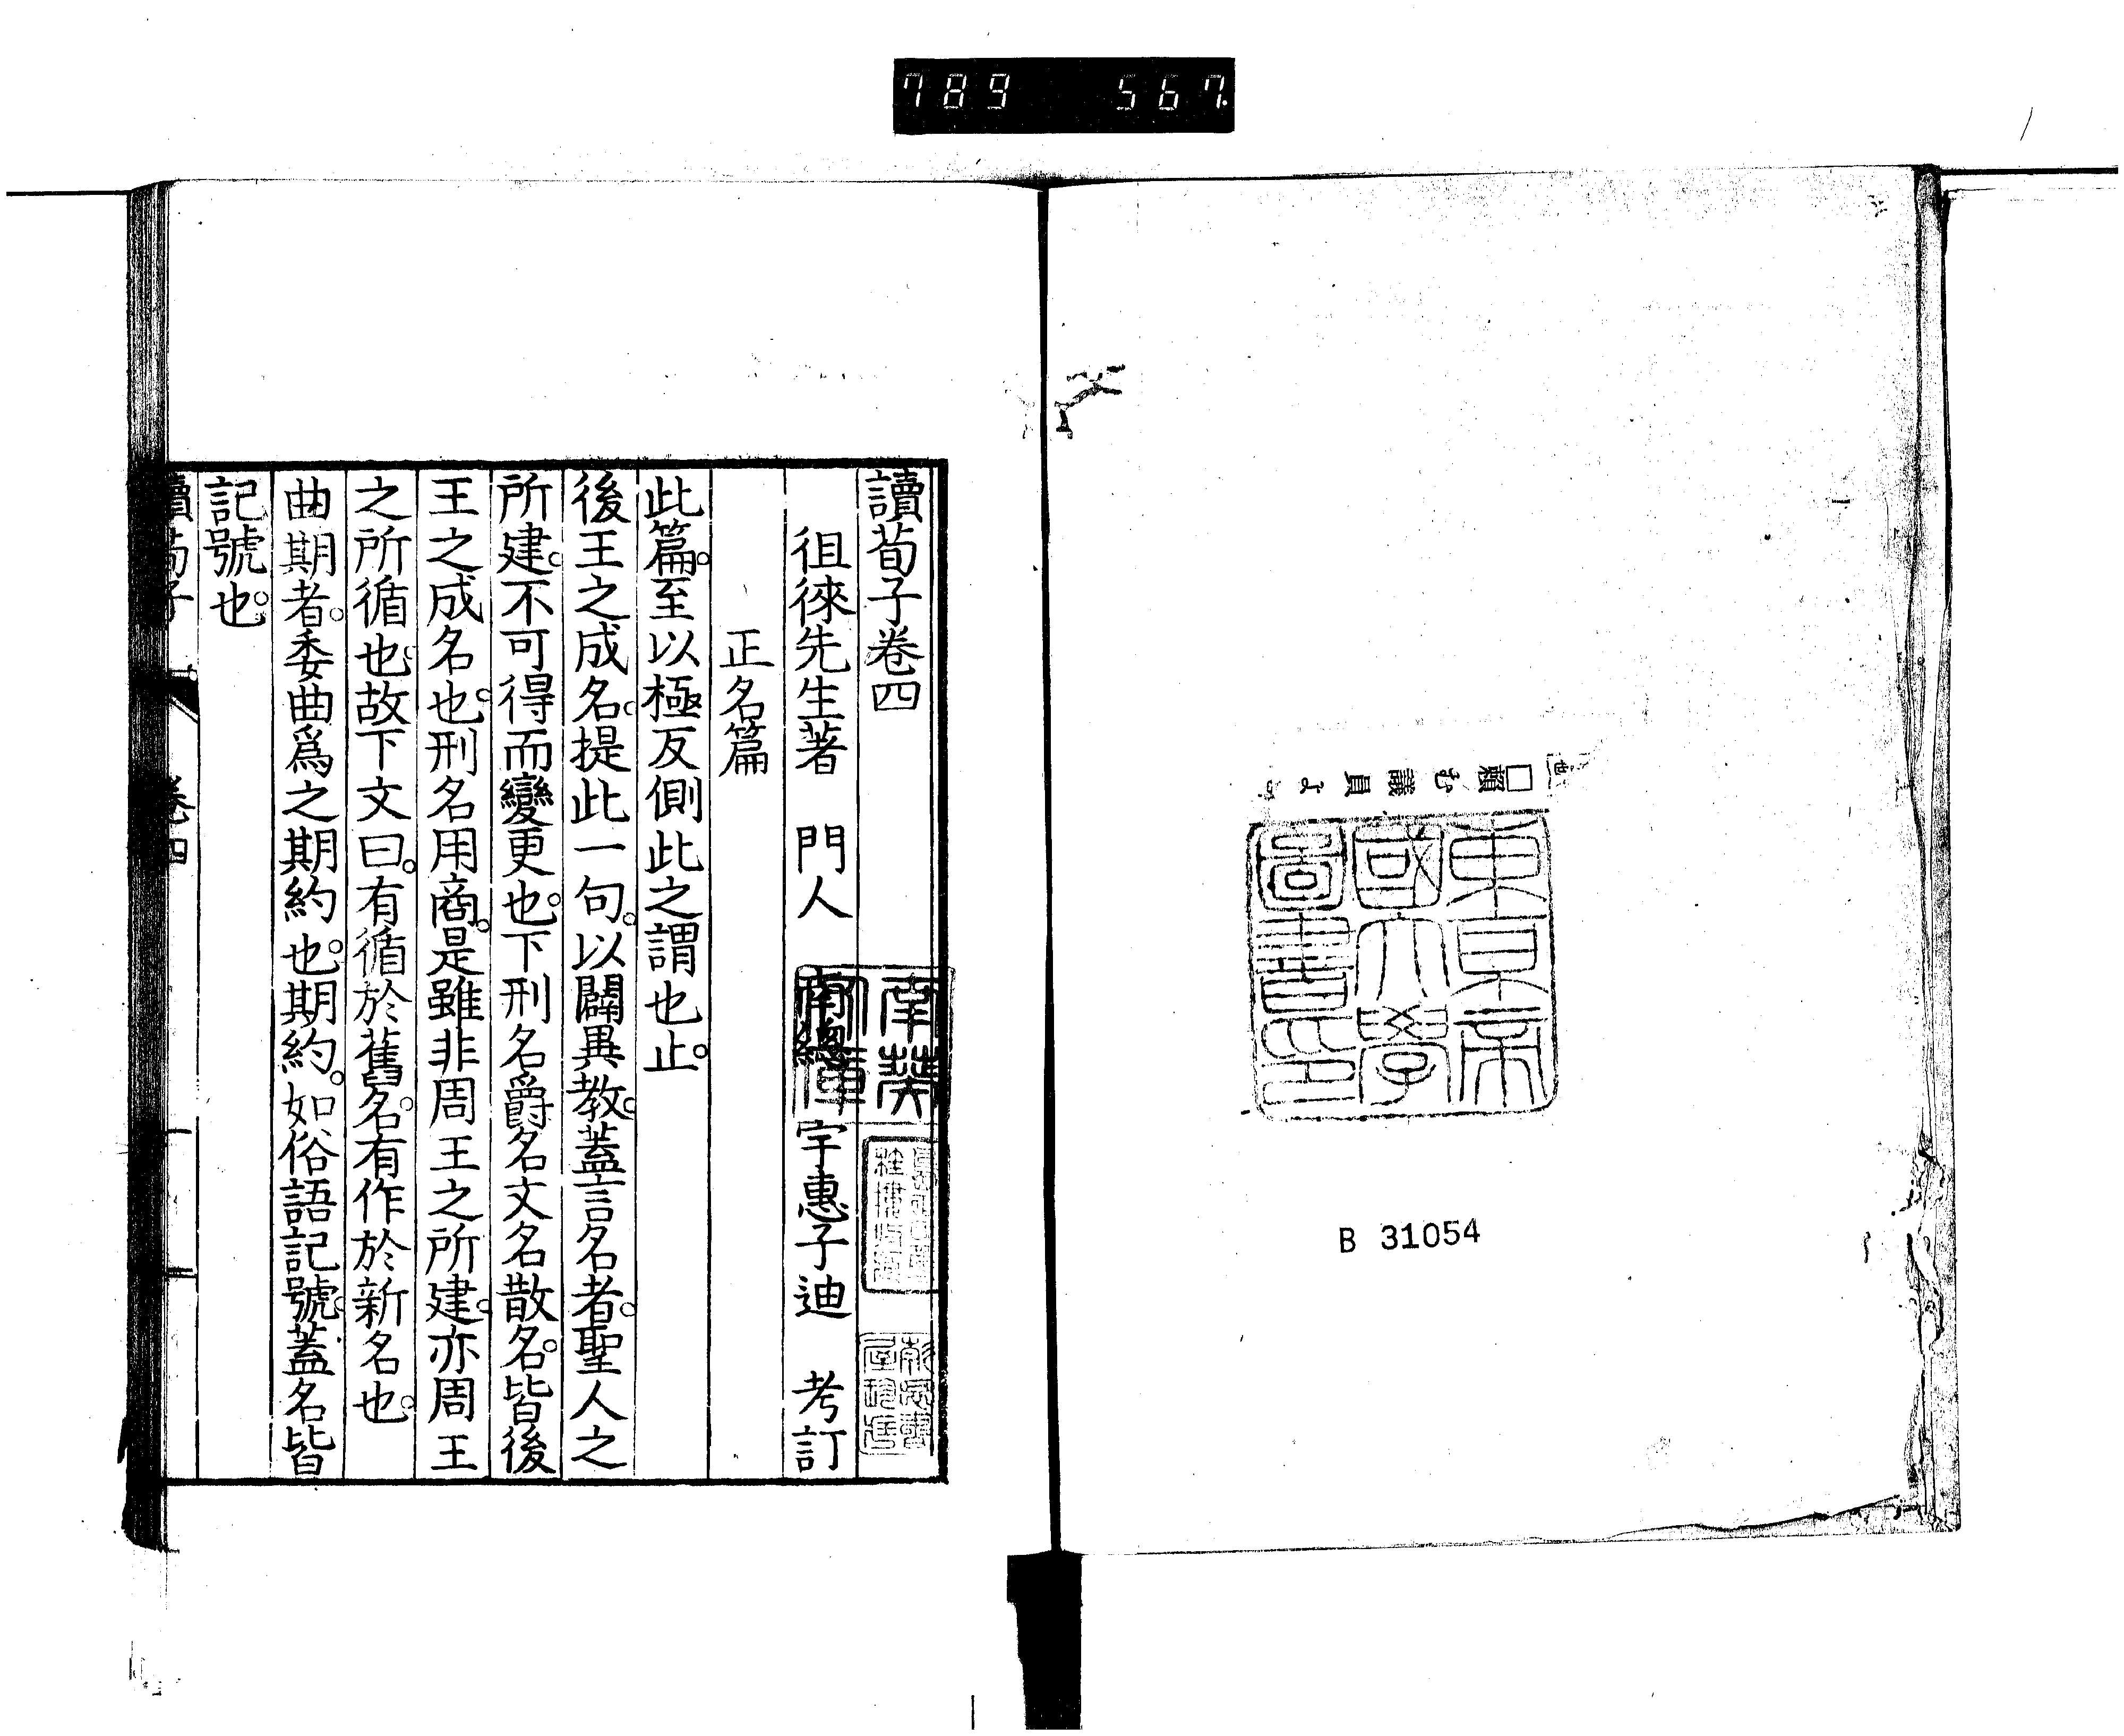 789 567
東京帝
國大學
圖書印
B 31054
讀荀子卷四
徂徠先生著 門人 南總 宇惠子迪 考訂
正名篇
此篇。至以極反側此之謂也止。
後王之成名。提此一句。以闢異教。蓋言名者。聖人之
所建。不可得而變更也。下刑名爵名文名散名。皆後
王之成名也。刑名用商。是雖非周王之所建。亦周王
之所循也。故下文曰。有循於舊名。有作於新名也。
曲期者。委曲爲之期約也。期約。如俗語記號。蓋名皆
記號也。
讀荀子 卷四